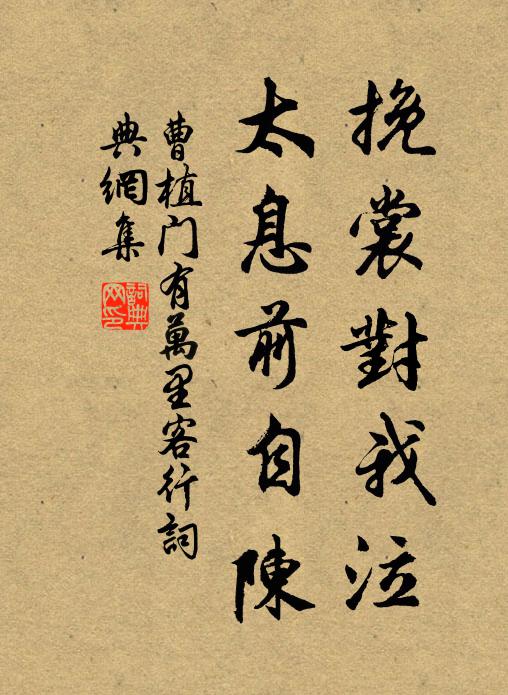 挽裳對我泣
太息前自陳
曹植门有萬里客行詞
典網集
詞典
网印